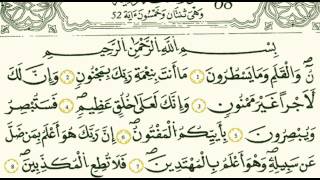 وَهِيَ ثِنْتَانِ وَخَمْسُونَ اٰيَةً 52
بِسْمِ اللّٰهِ الرَّحْمٰنِ الرَّحِيْمِ
نٓ وَالْقَلَمِ وَمَا يَسْطُرُوْنَ ١ مَا اَنْتَ بِنِعْمَةِ رَبِّكَ بِمَجْنُوْنٍ ٢ وَاِنَّ لَكَ
لَاَجْرًا غَيْرَ مَمْنُوْنٍ ٣ وَاِنَّكَ لَعَلٰى خُلُقٍ عَظِيْمٍ ٤ فَسَتُبْصِرُ
وَيُبْصِرُوْنَ ٥ بِاَيِّكُمُ الْمَفْتُوْنُ ٦ اِنَّ رَبَّكَ هُوَ اَعْلَمُ بِمَنْ ضَلَّ
عَنْ سَبِيْلِهٖ وَهُوَ اَعْلَمُ بِالْمُهْتَدِيْنَ ٧ فَلَا تُطِعِ الْمُكَذِّبِيْنَ ٨